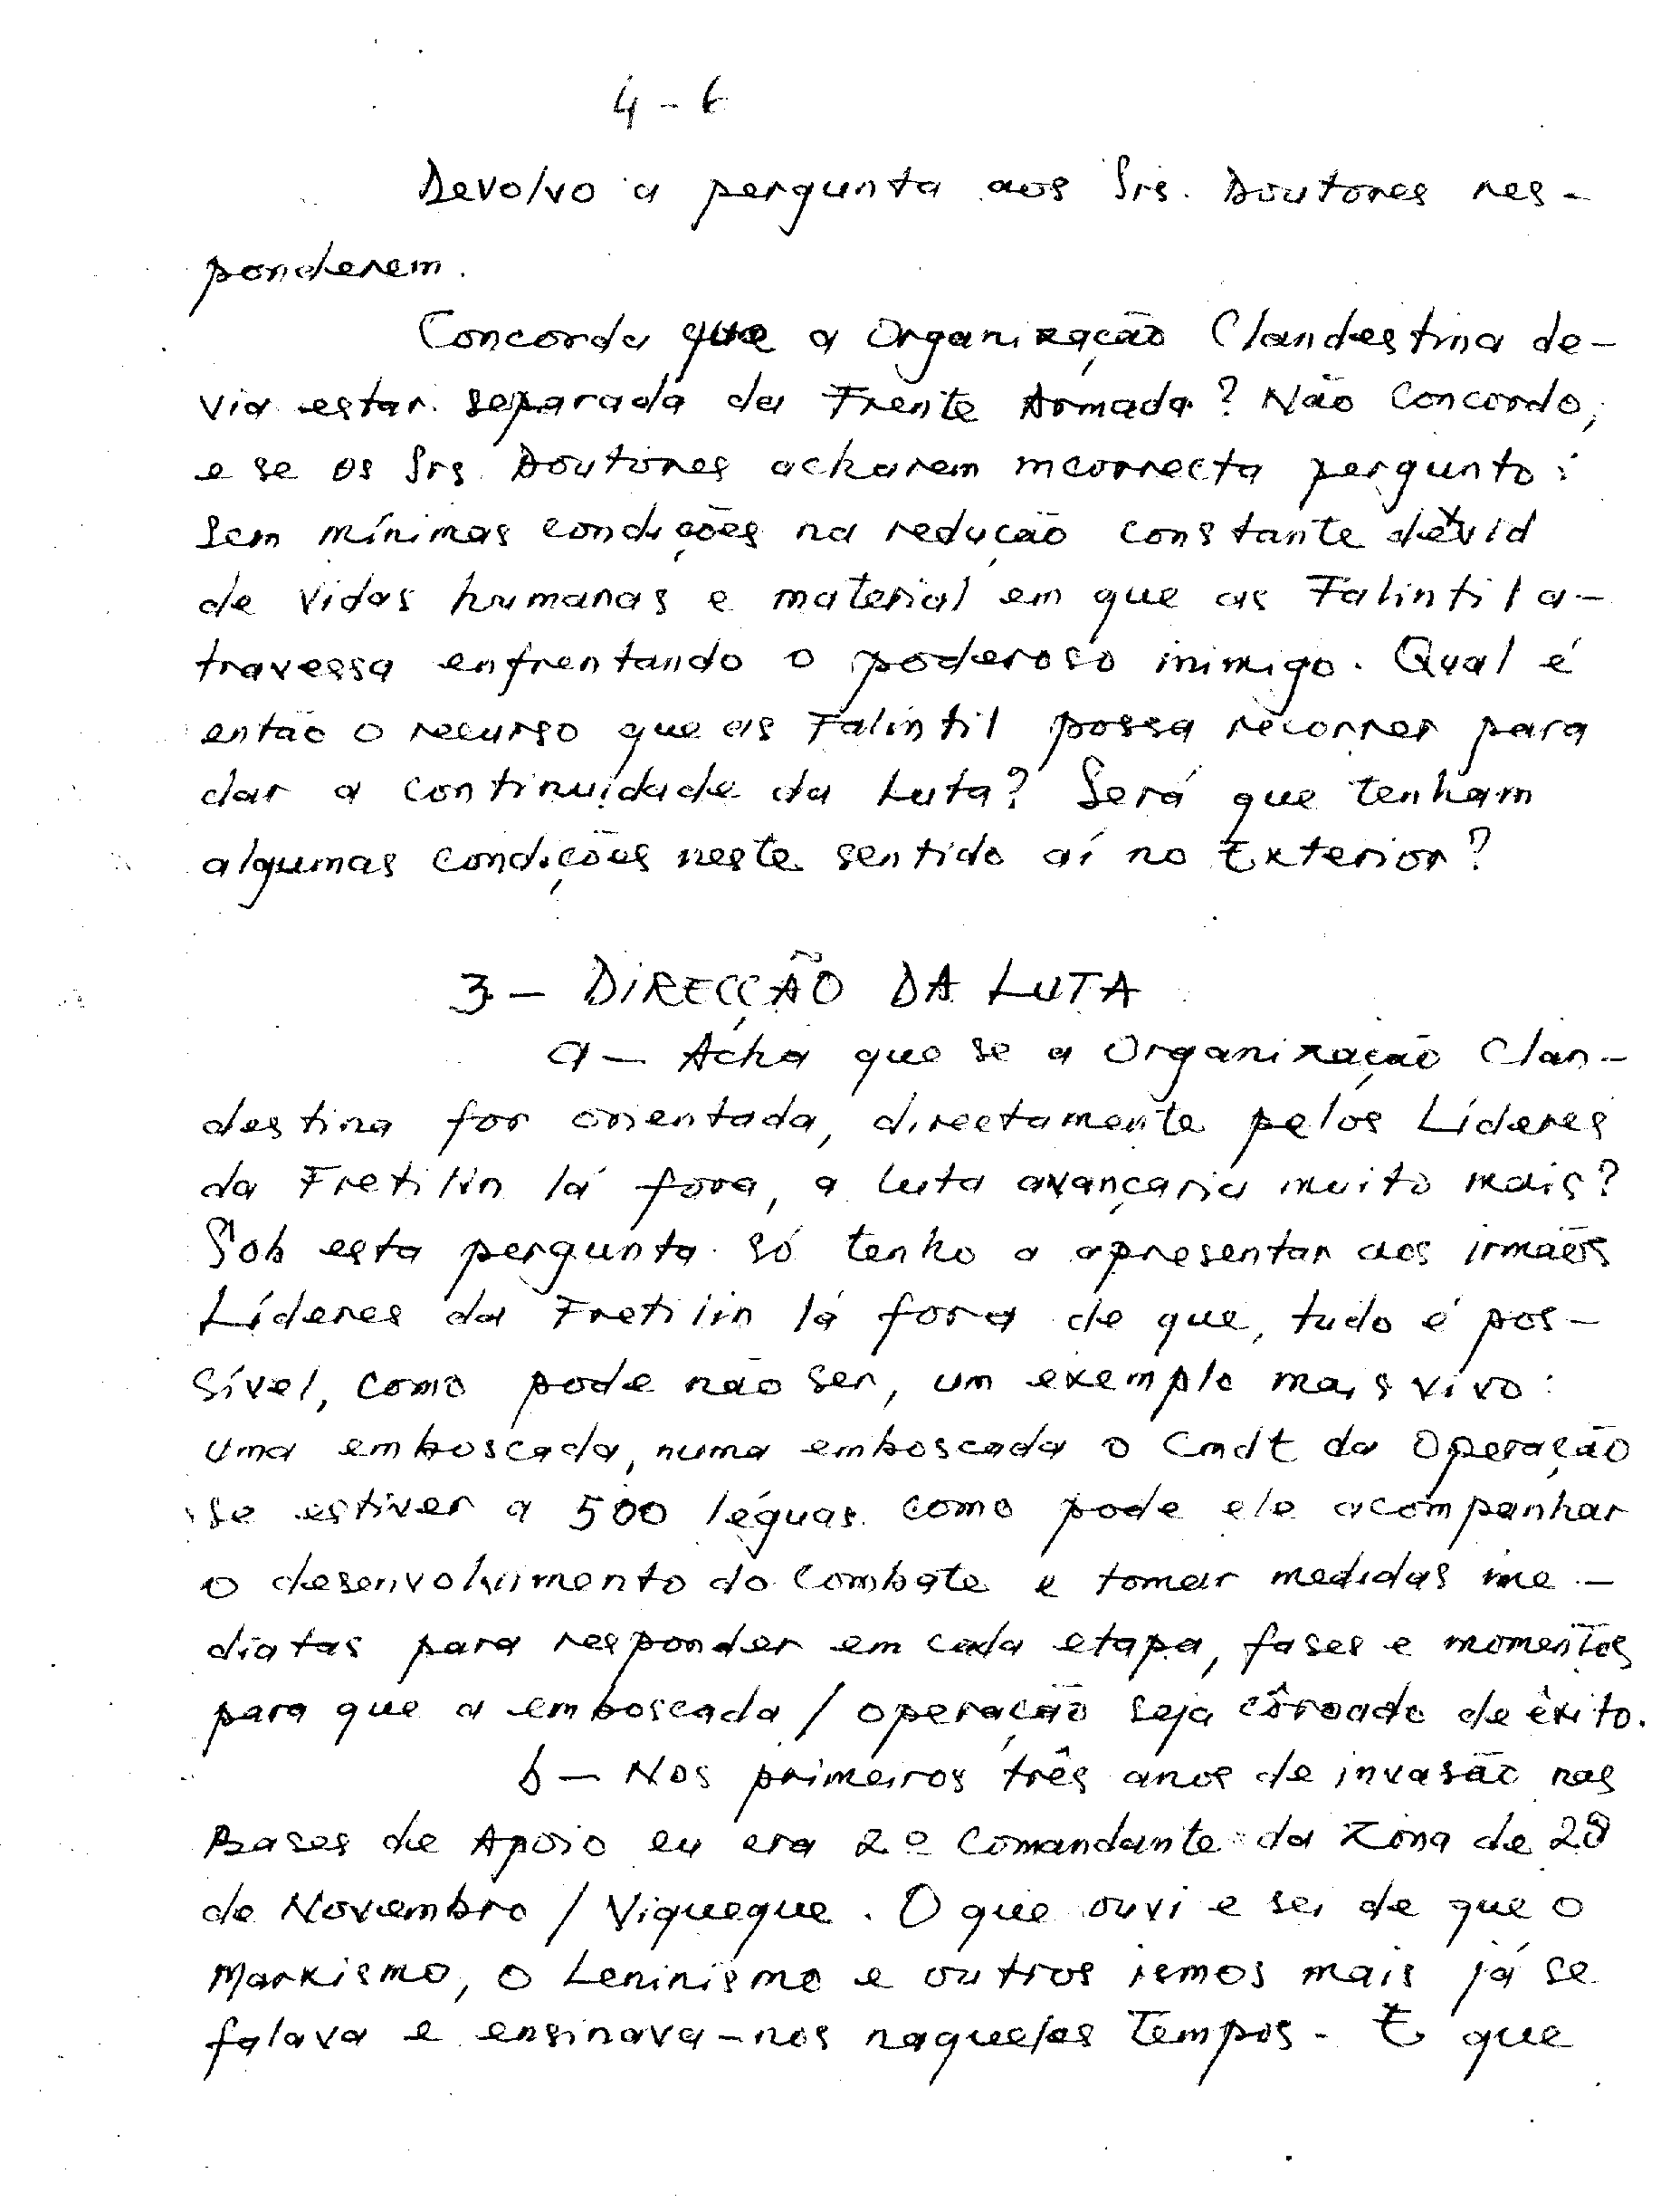 4 - 6
Devolvo a pergunta aos Srs. Doutores res-
ponderem.
Concorda que a Organização Clandestina de-
via estar separada da Frente Armada? Não Concordo,
e se os Srs. Doutores acharem incorrecta pergunto:
Sem mínimas condições na redução constante
de vidas humanas e material em que as Falintil a-
travessa enfrentando o poderoso inimigo. Qual é
então o recurso que as Falintil possa recorrer para
dar a continuidade da Luta? Será que tenham
algumas condições neste sentido aí no Exterior?
3 - DIRECÇÃO DA LUTA
a - Acha que se a Organização Clan-
destina for orientada, directamente pelos Líderes
da Fretilin lá fora, a luta avançaria muito mais?
Sob esta pergunta só tenho a apresentar aos irmãos
Líderes da Fretilin lá fora de que, tudo é pos-
sível, como pode não ser, um exemplo mais vivo:
Uma emboscada, numa emboscada o Cmdt da Operação
se estiver a 500 léguas como pode ele acompanhar
o desenvolvimento do Combate e tomar medidas ime-
diatas para responder em cada etapa, fases e momentos
para que a emboscada / operação seja côroado de êxito.
b - Nos primeiros três anos de invasão nas
Bases de Apoio eu era 2º Comandante da Zona de 28
de Novembro / Viqueque. O que ouvi e sei de que o
Marxismo, o Leninismo e outros ismos mais já se
falava e ensinava-nos naqueles tempos. E que